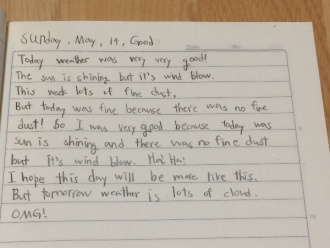 Sunday, May, 14, Good
Today weather was very very good!
The sun is shining but it's wind blow.
This week lots of fine dust,
But today was fine because there was no fine
dust! So I was very good because today was
sun is shining and there was no fine dust
but it's wind blow. Ha! Ha!
I hope this day will be more like this.
But tomorrow weather is lots of cloud.
OMG!